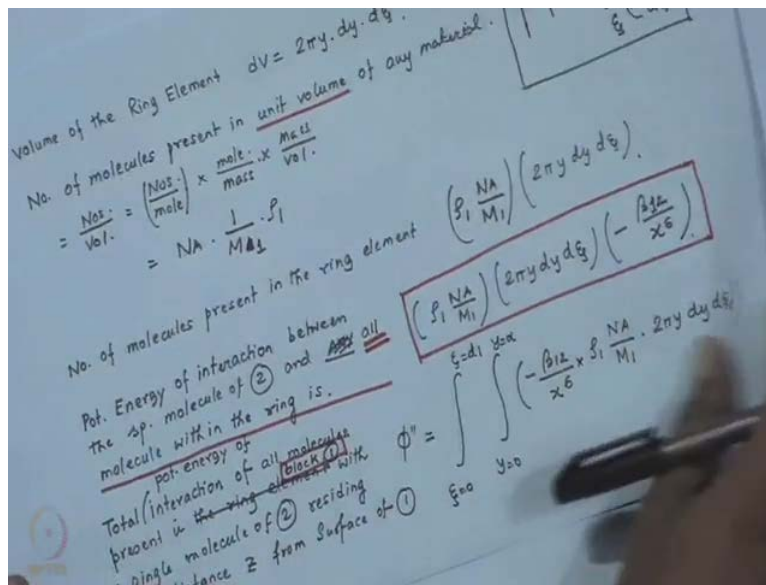 Volume of the Ring Element dV = 2πy. dy. dξ.
No. of molecules present in unit volume of any material.
= Nos./Vol. = (Nos./mole) × mole./mass × Mass/Vol.
= NA . 1/M1 . ρ1
No. of molecules present in the ring element (ρ1 NA/M1) (2πy dy dξ).
Pot. Energy of interaction between
the sp. molecule of ② and all
molecule with in the ring is.
(ρ1 NA/M1) (2πy dy dξ) (- β12/x^6).
pot. energy of
Total (interaction of all molecules
present in the ring element with
block ①
single molecule of ② residing
distance Z from Surface of ①
φ'' = ∫ ξ=0 ξ=d1 ∫ y=0 y=α (- β12/x^6 × ρ1 NA/M1 . 2πy dy dξ